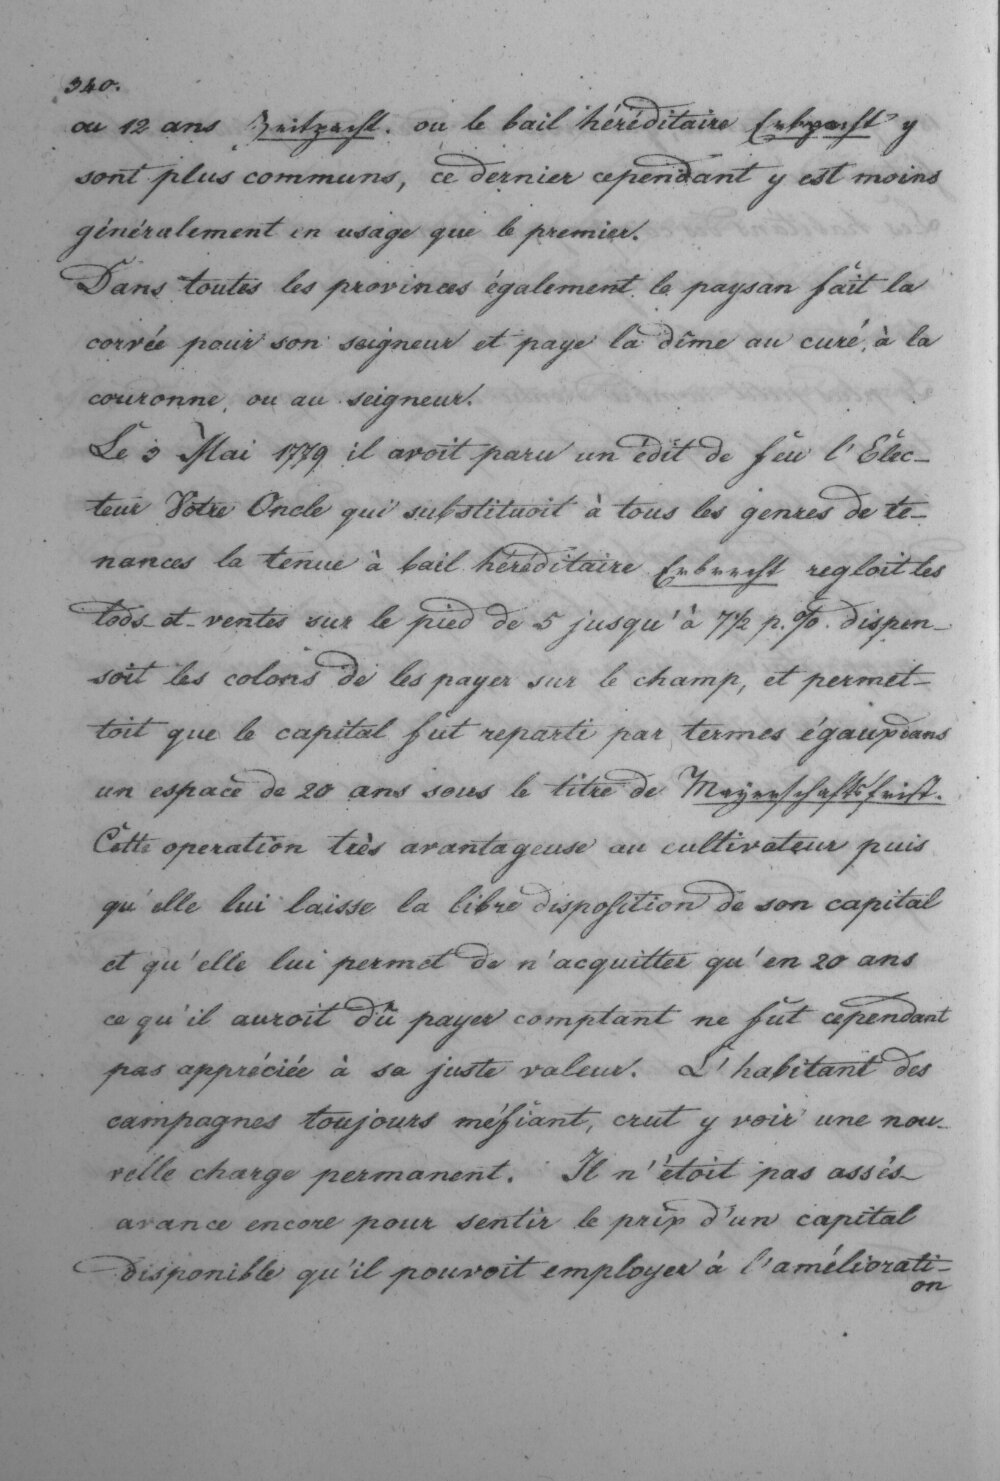 340.
ou 12 ans Zeitpacht. ou le bail héréditaire Erbpacht y
sont plus communs, ce dernier cependant y est moins
généralement en usage que le premier.
Dans toutes les provinces également le paysan fait la
corvée pour son seigneur et paye la dîme au curé, à la
couronne, ou au seigneur.
Le 3 Mai 1779 il avoit paru un édit de feu l'Elec-
teur Votre Oncle qui substituoit à tous les genres de te-
nances la tenue à bail héréditaire Erbrecht regloit les
lods-et-ventes sur le pied de 5 jusqu'à 7½ p.% dispen-
soit les colons de les payer sur le champ, et permet-
toit que le capital fut reparti par termes égaux dans
un espace de 20 ans sous le titre de Mayerschaftsfrist.
Cette operation très avantageuse au cultivateur puis
qu'elle lui laisse la libre disposition de son capital
et qu'elle lui permet de n'acquitter qu'en 20 ans
ce qu'il auroit dû payer comptant ne fut cependant
pas appréciée à sa juste valeur. L'habitant des
campagnes toujours méfiant, crut y voir une nou-
velle charge permanent. Il n'étoit pas assés
avance encore pour sentir le prix d'un capital
disponible qu'il pouvoit employer à l'améliorati-
on